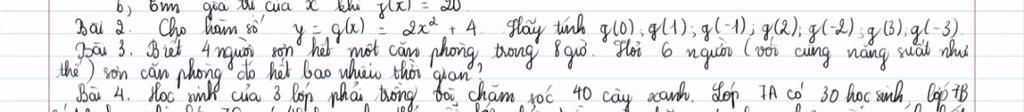 b) Tìm giá trị của x khi f(x) = 20
Bài 2. Cho hàm số y = g(x) = 2x² + 4. Hãy tính g(0); g(1); g(-1); g(2); g(-2); g(3); g(-3)
Bài 3. Biết 4 người sơn hết một căn phòng trong 8 giờ. Hỏi 6 người (với cùng năng suất như
thế) sơn căn phòng đó hết bao nhiêu thời gian?
Bài 4. Học sinh của 3 lớp phải trồng và chăm sóc 40 cây xanh. Lớp 7A có 30 học sinh, lớp 7B